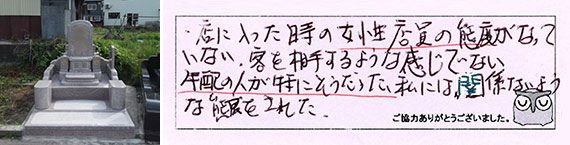 ・店に入った時の女性店員の態度がなって
いない、客を相手するような感じでない、
年配の人が特にそうだった、私には、関係ないよう
な態度をされた。
ご協力ありがとうございました。